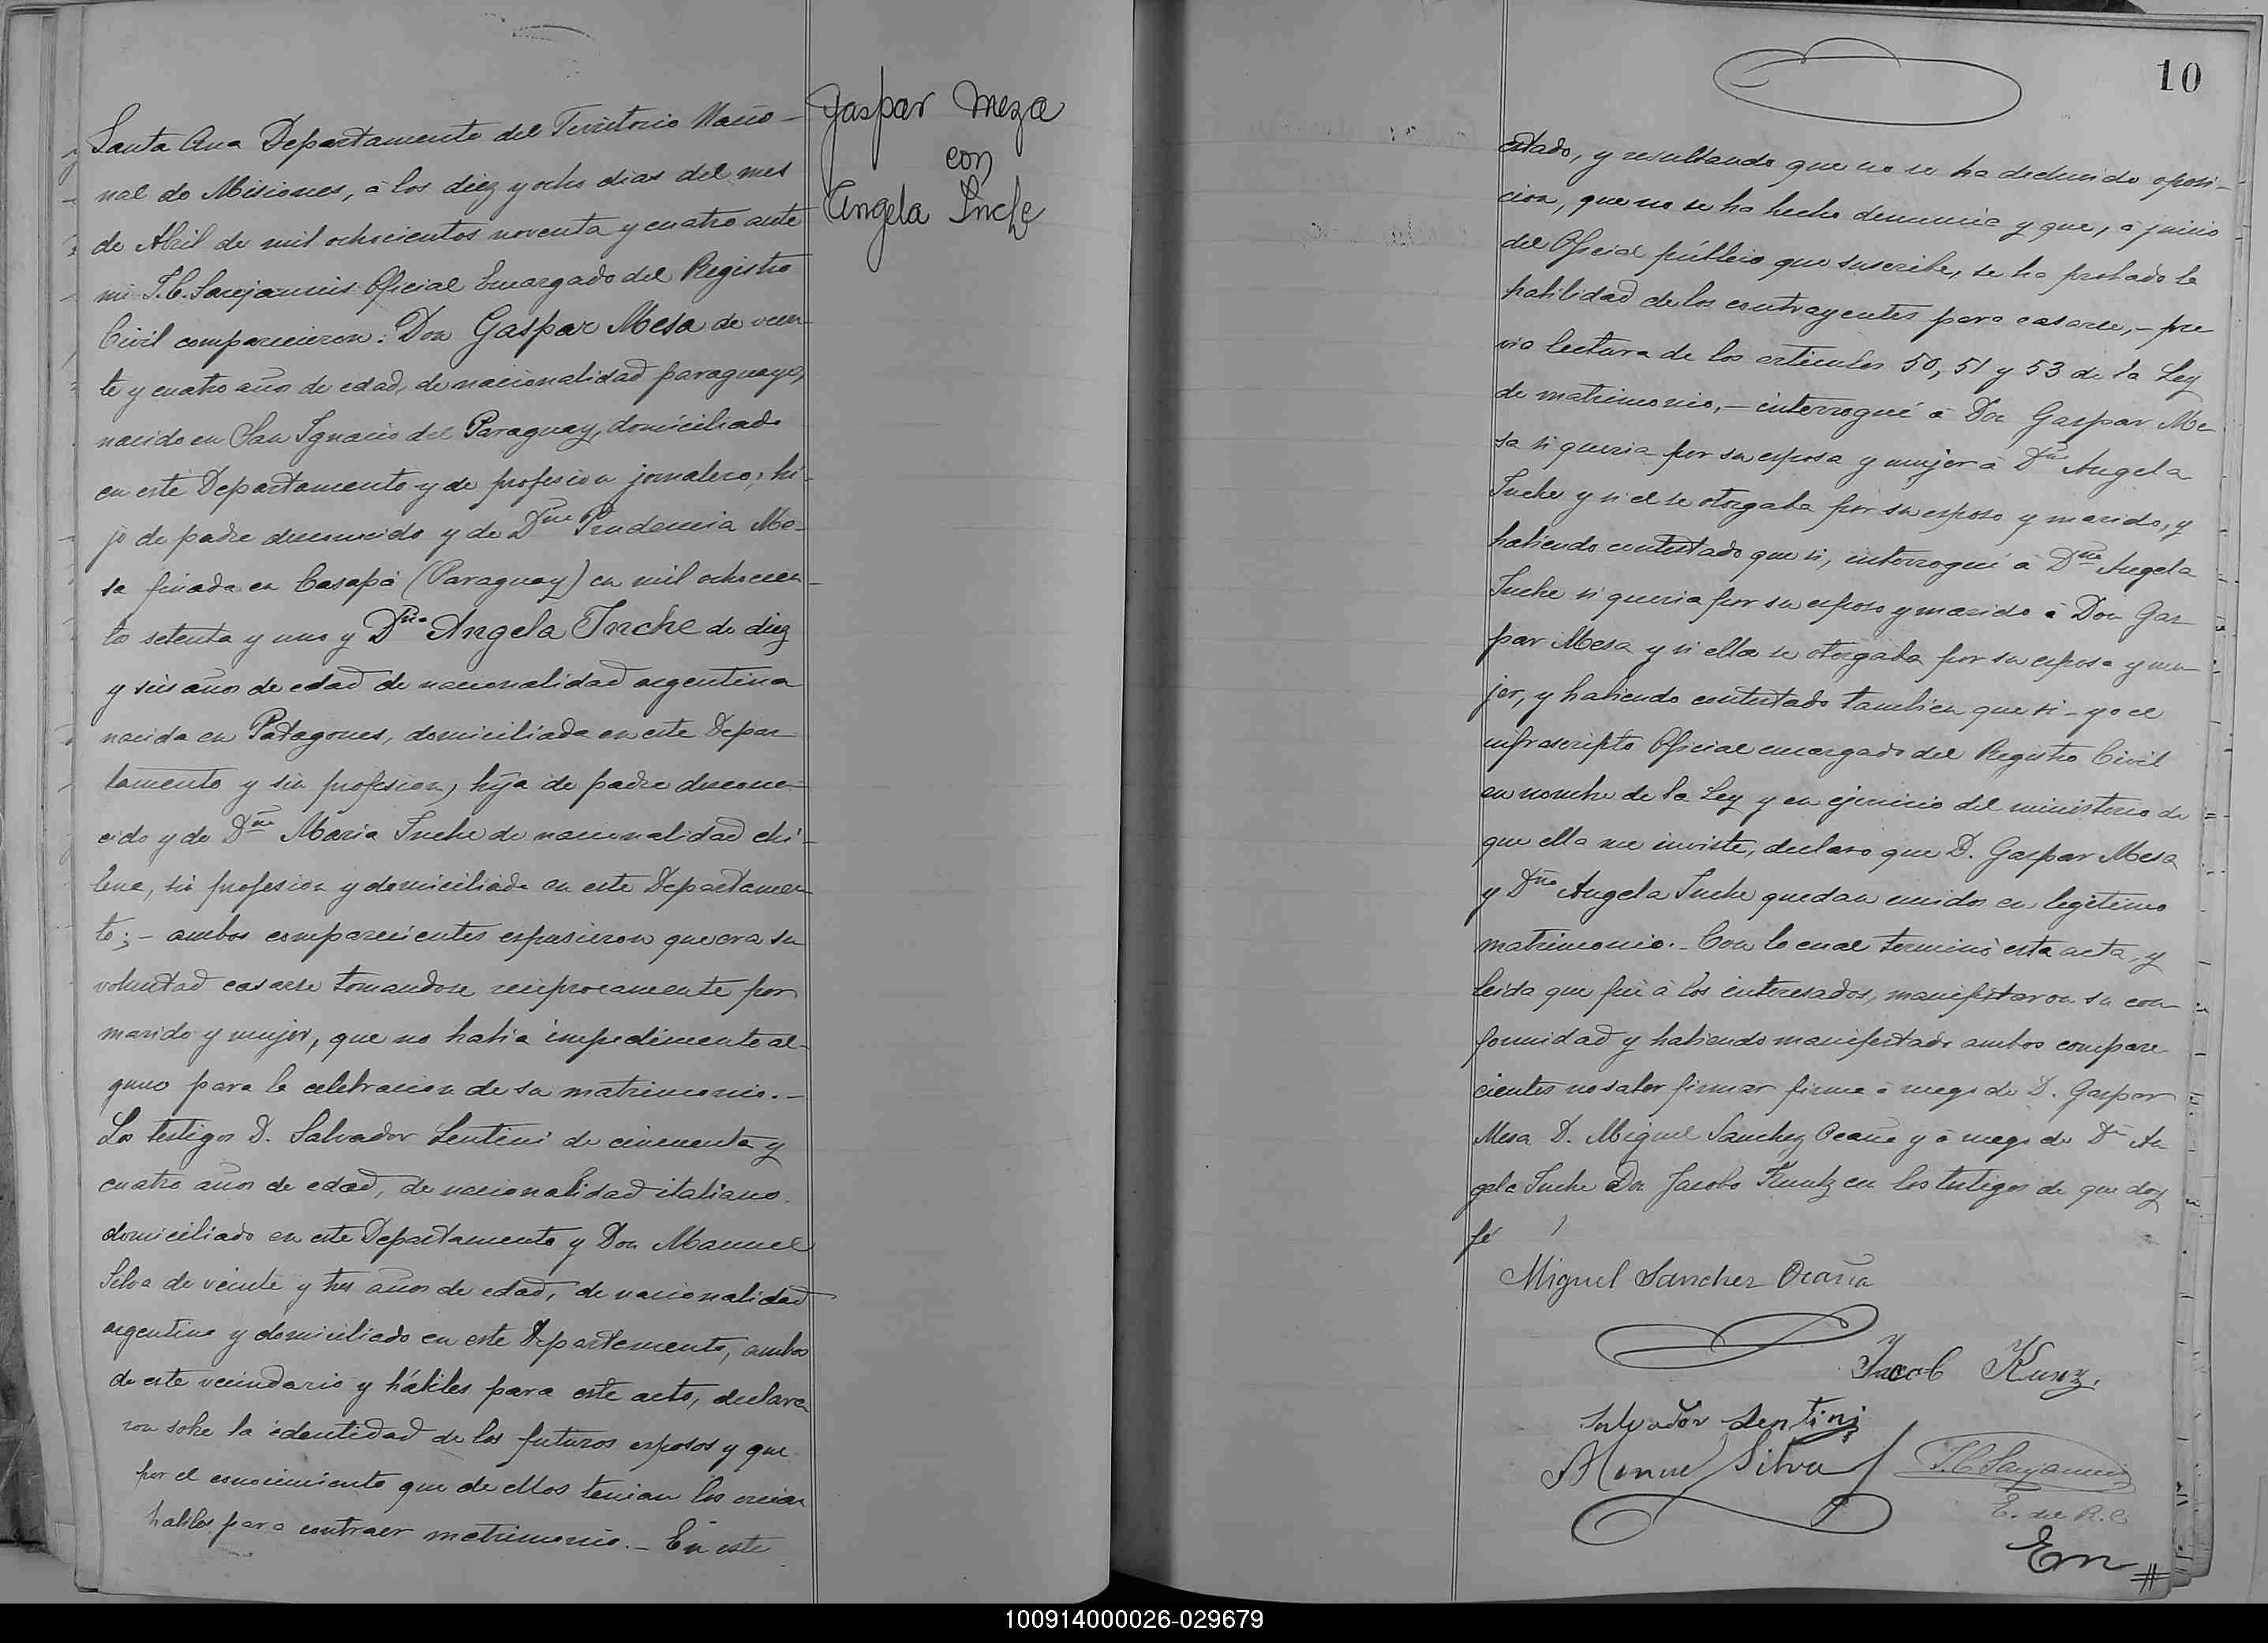 Santa Ana Departamento del Territorio Nacio-
nal de Misiones, á los diez y ocho dias del mes
de Abril de mil ochocientos noventa y cuatro ante
mi T. C. Oficial Encargado del Registro
Civil comparecieron: Don Gaspar Mesa de vein-
te y cuatro años de edad, de nacionalidad paraguayo,
nacido en San Ignacio del Paraguay, domiciliado
en este Departamento y de profesion jornalero; hi-
jo de padre desconocido y de Dña Prudencia Me-
sa finada en Casapá (Paraguay) en mil ochocien-
to setenta y uno y Dña Angela Inche de diez
y seis años de edad de nacionalidad argentina
nacida en Patagones, domiciliada en este Depar-
tamento y sin profesion, hija de padre descono-
cido y de Dña Maria Inche de nacionalidad chi-
lena, sin profesion y domiciliada en este Departamen-
to; - ambos comparecientes espusieron que era su
voluntad casarse tomandose reciprocamente por
marido y mujer, que no habia impedimento al-
guno para la celebracion de su matrimonio. -
Los testigos D. Salvador Lentini de cincuenta y
cuatro años de edad, de nacionalidad italiano,
domiciliado en este Departamento y Don Manuel
Silva de veinte y tres años de edad, de nacionalidad
argentino y domiciliado en este Departamento, ambos
de este vecindario y hábiles para este acto, declara
ron sobre la identidad de los futuros esposos y que
por el conocimiento que de ellos tenian los creian
habiles para contraer matrimonio. - En este
Gaspar Meza
con
Angela Inche
10
estado, y resultando que no se ha deducido oposi-
cion, que no se ha hecho denuncia y que, á juicio
del Oficial público que suscribe, se ha probado la
habilidad de los contrayentes para casarse, - pre
via lectura de los articulos 50, 51 y 53 de la Ley
de matrimonio, - interrogué á Don Gaspar Me
sa si queria por su esposa y mujer á Dña Angela
Inche y si el se otorgaba por su esposo y marido, y
habiendo contestado que si, interrogué á Dña Angela
Inche si queria por su esposo y marido á Don Gas
par Mesa y si ella se otorgaba por su esposa y mu
jer, y habiendo contestado tambien que si - yo el
infrascripto Oficial encargado del Registro Civil
en nombre de la Ley y en ejercicio del ministerio de
que ella me inviste, declaro que D. Gaspar Mesa
y Dña Angela Inche quedan unidos en legitimo
matrimonio. - Con lo cual terminó esta acta, y
leida que fué á los interesados, manifestaron su con
formidad y habiendo manifestado ambos compare
cientes no saber firmar firma á ruego de D. Gaspar
Mesa D. Miguel Sanchez Ocaña y á ruego de Dª An
gela Inche Don Jacobo Kuntz con los testigos de que doy
fé
Miguel Sanchez Ocaña
Jacob Kunz.
Salvador Lentini
Manuel Silva
E. del R. C.
Em
100914000026-029679